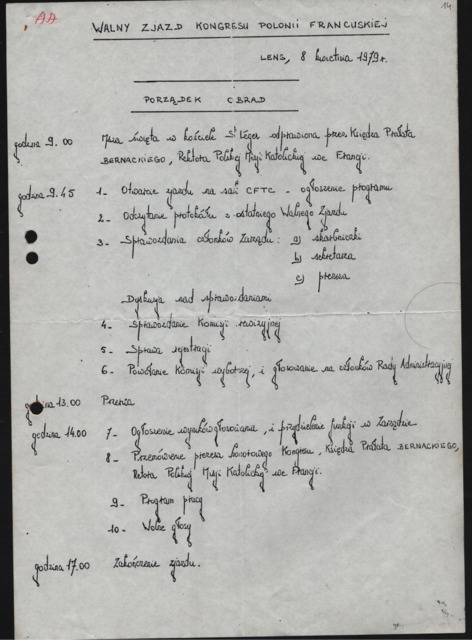 AA
14
WALNY ZJAZD KONGRESU POLONII FRANCUSKIEJ
LENS, 8 kwietnia 1979 r.
PORZĄDEK OBRAD
godzina 9.00 Msza święta w kościele St Léger odprawiona przez Księdza Prałata
BERNACKIEGO, Rektora Polskiej Misji Katolickiej we Francji.
godzina 9.45 1- Otwarcie zjazdu na sali CFTC - ogłoszenie programu
2- Odczytanie protokółu z ostatniego Walnego Zjazdu
3- Sprawozdania członków Zarządu: a) skarbniczki
b) sekretarza
c) prezesa
Dyskusja nad sprawozdaniami
4- Sprawozdanie Komisji rewizyjnej
5- Sprawa rejestracji
6- Powołanie Komisji wyborczej, i głosowanie na członków Rady Administracyjnej
godzina 13.00 Przerwa
godzina 14.00 7- Ogłoszenie wyników głosowania, i przydzielenie funkcji w Zarządzie
8- Przemówienie prezesa honorowego Kongresu, Księdza Prałata BERNACKIEGO,
Rektora Polskiej Misji Katolickiej we Francji.
9- Program pracy
10- Wolne głosy
godzina 17.00 Zakończenie zjazdu.